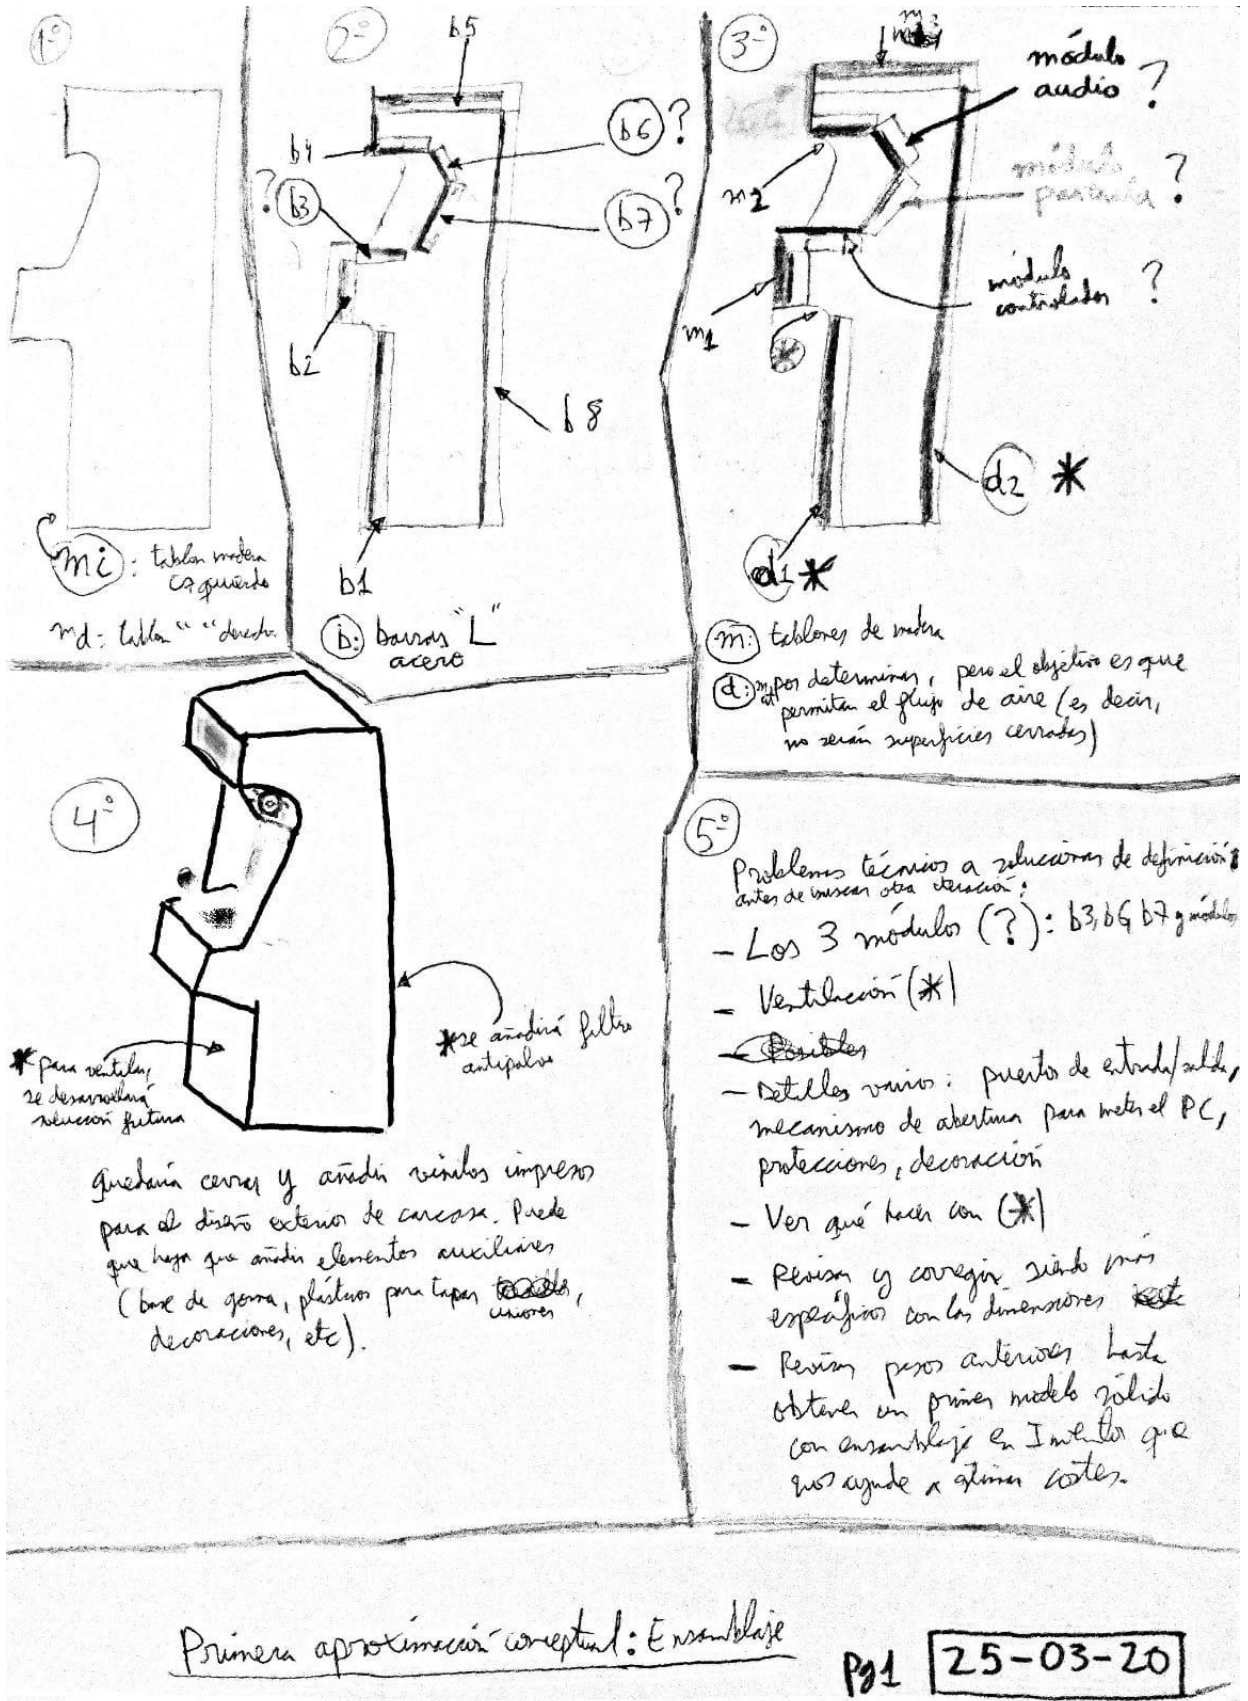 1º
mi: tablon madera
izquierdo
md: tablon " " derecho
2º
b5
b4
b6 ?
? b3
b7 ?
b2
b8
b1
b: barras "L"
acero
3º
m3
módulo
audio ?
m2
módulo
pantalla ?
módulo
controlador ?
m1
*
d2 *
d1 *
m: tablones de madera
d: por determinar, pero el objetivo es que
permitan el flujo de aire (es decir,
no serán superficies cerradas)
4º
* para ventilar,
se desarrollará
solución futura
* se añadirá filtro
antipolvo
Quedaría cerrar y añadir vinilos impresos
para el diseño exterior de carcasa. Puede
que haya que añadir elementos auxiliares
(base de goma, plásticos para tapar uniones,
decoraciones, etc).
5º
Problemas técnicos a solucionar de definición
antes de buscar otra iteración:
- Los 3 módulos (?): b3, b6, b7 y módulos
- Ventilación (*)
- Posibles
- Detalles varios: puertos de entrada/salida,
mecanismo de abertura para meter el PC,
protecciones, decoración
- Ver qué hacer con (*)
- Revisar y corregir siendo más
específicos con las dimensiones
- Revisar pasos anteriores hasta
obtener un primer modelo sólido
con ensamblaje en Inventor que
nos ayude a estimar costes.
Primera aproximación conceptual: Ensamblaje
Pg 1 25-03-20